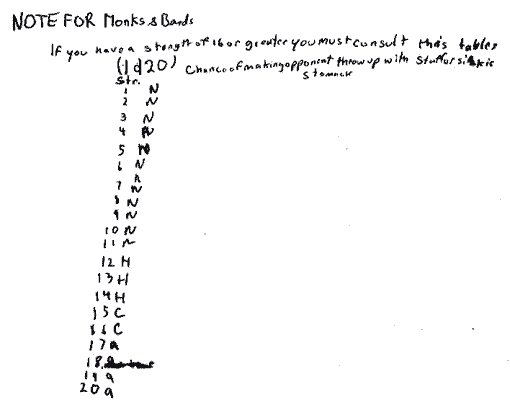 NOTE FOR Monks & Bards
If you have a strength of 16 or greater you must consult this tables
(1d20) Chance of making opponent throw up with stuff or sick is
Str. stomach
1 N
2 N
3 N
4 N
5 N
6 N
7 N
8 N
9 N
10 N
11 N
12 H
13 H
14 H
15 C
16 C
17 a
18 a
19 a
20 a